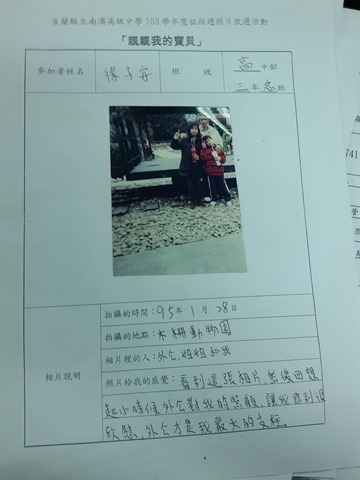 宜蘭縣立南澳高級中學 103 學年度祖孫週照片徵選活動
「親親我的寶貝」
參加者姓名 徐子安 班 級 高中部
三年忠班
拍攝的時間：95年1月28日
拍攝的地點：木柵動物園
相片裡的人：外公,姐姐和我
相片說明
照片給我的感覺：看到這張相片,然後回想
起小時候外公對我的照顧,讓我感到很
欣慰,外公才是我最大的支柱。
741